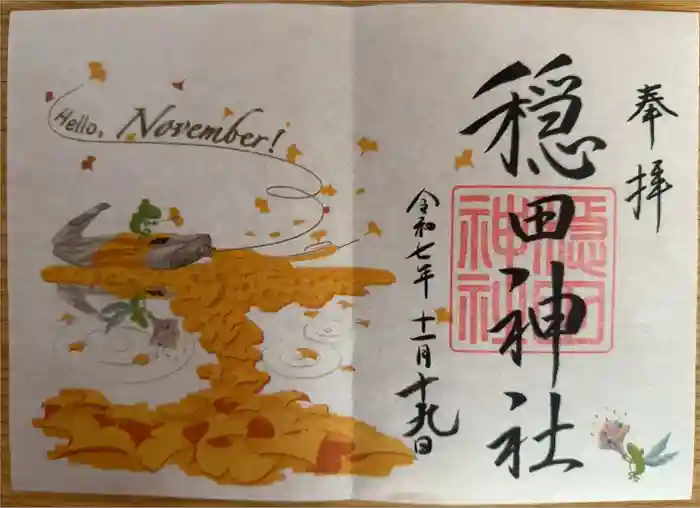 Hello, November!
奉拝
穏田神社
穏田神社
令和七年 十一月 十九日